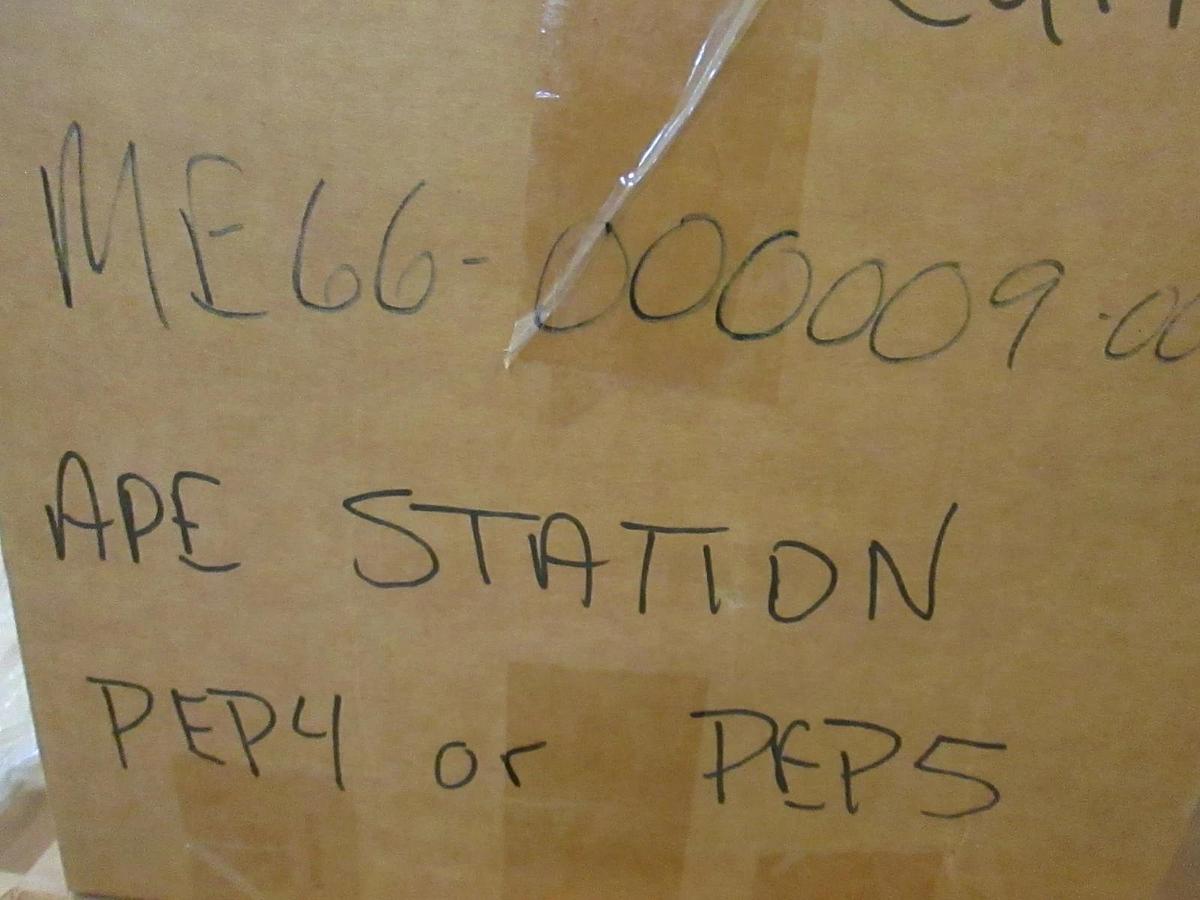 ME66-000009-00
APE STATION
PEP4 or PEP5